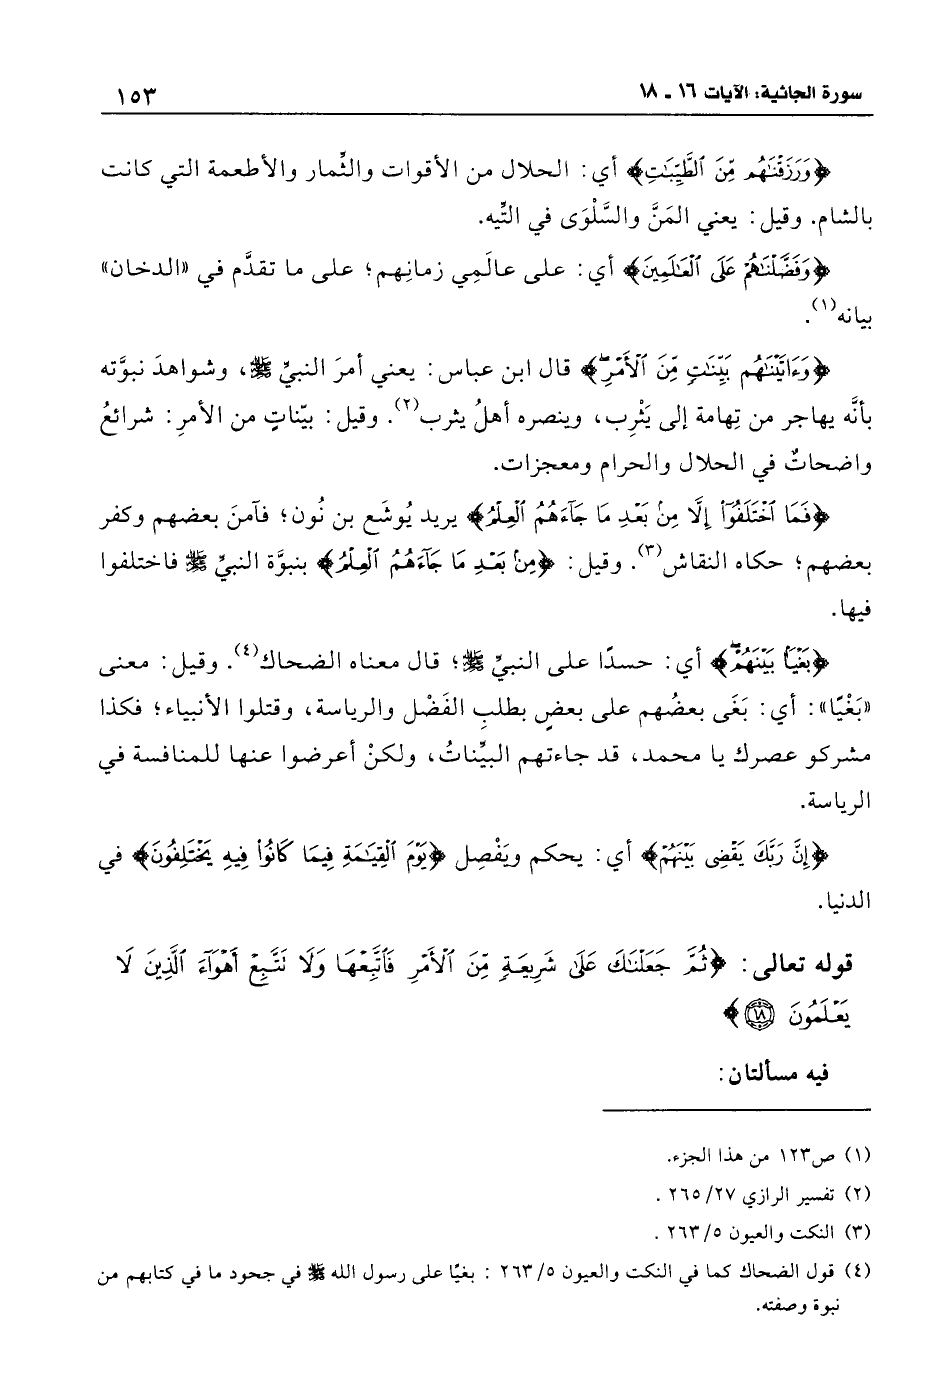 سورة الجاثية: الآيات ١٦ ـ ١٨ ١٥٣
﴿وَرَزَقْنَٰهُم مِّنَ ٱلطَّيِّبَٰتِ﴾ أي: الحلال من الأقوات والثِّمار والأطعمة التي كانت
بالشام. وقيل: يعني المَنَّ والسَّلْوَى في التِّيه.
﴿وَفَضَّلْنَٰهُمْ عَلَى ٱلْعَٰلَمِينَ﴾ أي: على عالَمِي زمانِهم؛ على ما تقدَّم في «الدخان»
بيانه(١).
﴿وَءَاتَيْنَٰهُم بَيِّنَٰتٍ مِّنَ ٱلْأَمْرِۖ﴾ قال ابن عباس: يعني أمرَ النبيِّ ﷺ، وشواهدَ نبوَّته
بأنَّه يهاجر من تِهامة إلى يَثْرِب، وينصره أهلُ يثرب(٢). وقيل: بيّناتٍ من الأمرِ: شرائعُ
واضحاتٌ في الحلال والحرام ومعجزات.
﴿فَمَا ٱخْتَلَفُوٓا۟ إِلَّا مِنۢ بَعْدِ مَا جَآءَهُمُ ٱلْعِلْمُ﴾ يريد يُوشَع بن نُون؛ فآمنَ بعضهم وكفر
بعضهم؛ حكاه النقاش(٣). وقيل: ﴿مِنۢ بَعْدِ مَا جَآءَهُمُ ٱلْعِلْمُ﴾ بنبوَّة النبيِّ ﷺ فاختلفوا
فيها.
﴿بَغْيًۢا بَيْنَهُمْۚ﴾ أي: حسدًا على النبيِّ ﷺ؛ قال معناه الضحاك(٤). وقيل: معنى
«بَغْيًا»: أي: بَغَى بعضُهم على بعضٍ بطلبِ الفَضْل والرياسة، وقتلوا الأنبياء؛ فكذا
مشركو عصرك يا محمد، قد جاءتهم البيِّناتُ، ولكنْ أعرضوا عنها للمنافسة في
الرياسة.
﴿إِنَّ رَبَّكَ يَقْضِى بَيْنَهُمْ﴾ أي: يحكم ويَفْصِل ﴿يَوْمَ ٱلْقِيَٰمَةِ فِيمَا كَانُوا۟ فِيهِ يَخْتَلِفُونَ﴾ في
الدنيا.
قوله تعالى: ﴿ثُمَّ جَعَلْنَٰكَ عَلَىٰ شَرِيعَةٍ مِّنَ ٱلْأَمْرِ فَٱتَّبِعْهَا وَلَا تَتَّبِعْ أَهْوَآءَ ٱلَّذِينَ لَا
يَعْلَمُونَ ۝١٨﴾
فيه مسألتان:
(١) ص١٢٣ من هذا الجزء.
(٢) تفسير الرازي ٢٧/ ٢٦٥ .
(٣) النكت والعيون ٥/ ٢٦٣ .
(٤) قول الضحاك كما في النكت والعيون ٥/ ٢٦٣ : بغيًا على رسول الله ﷺ في جحود ما في كتابهم من
نبوة وصفته.